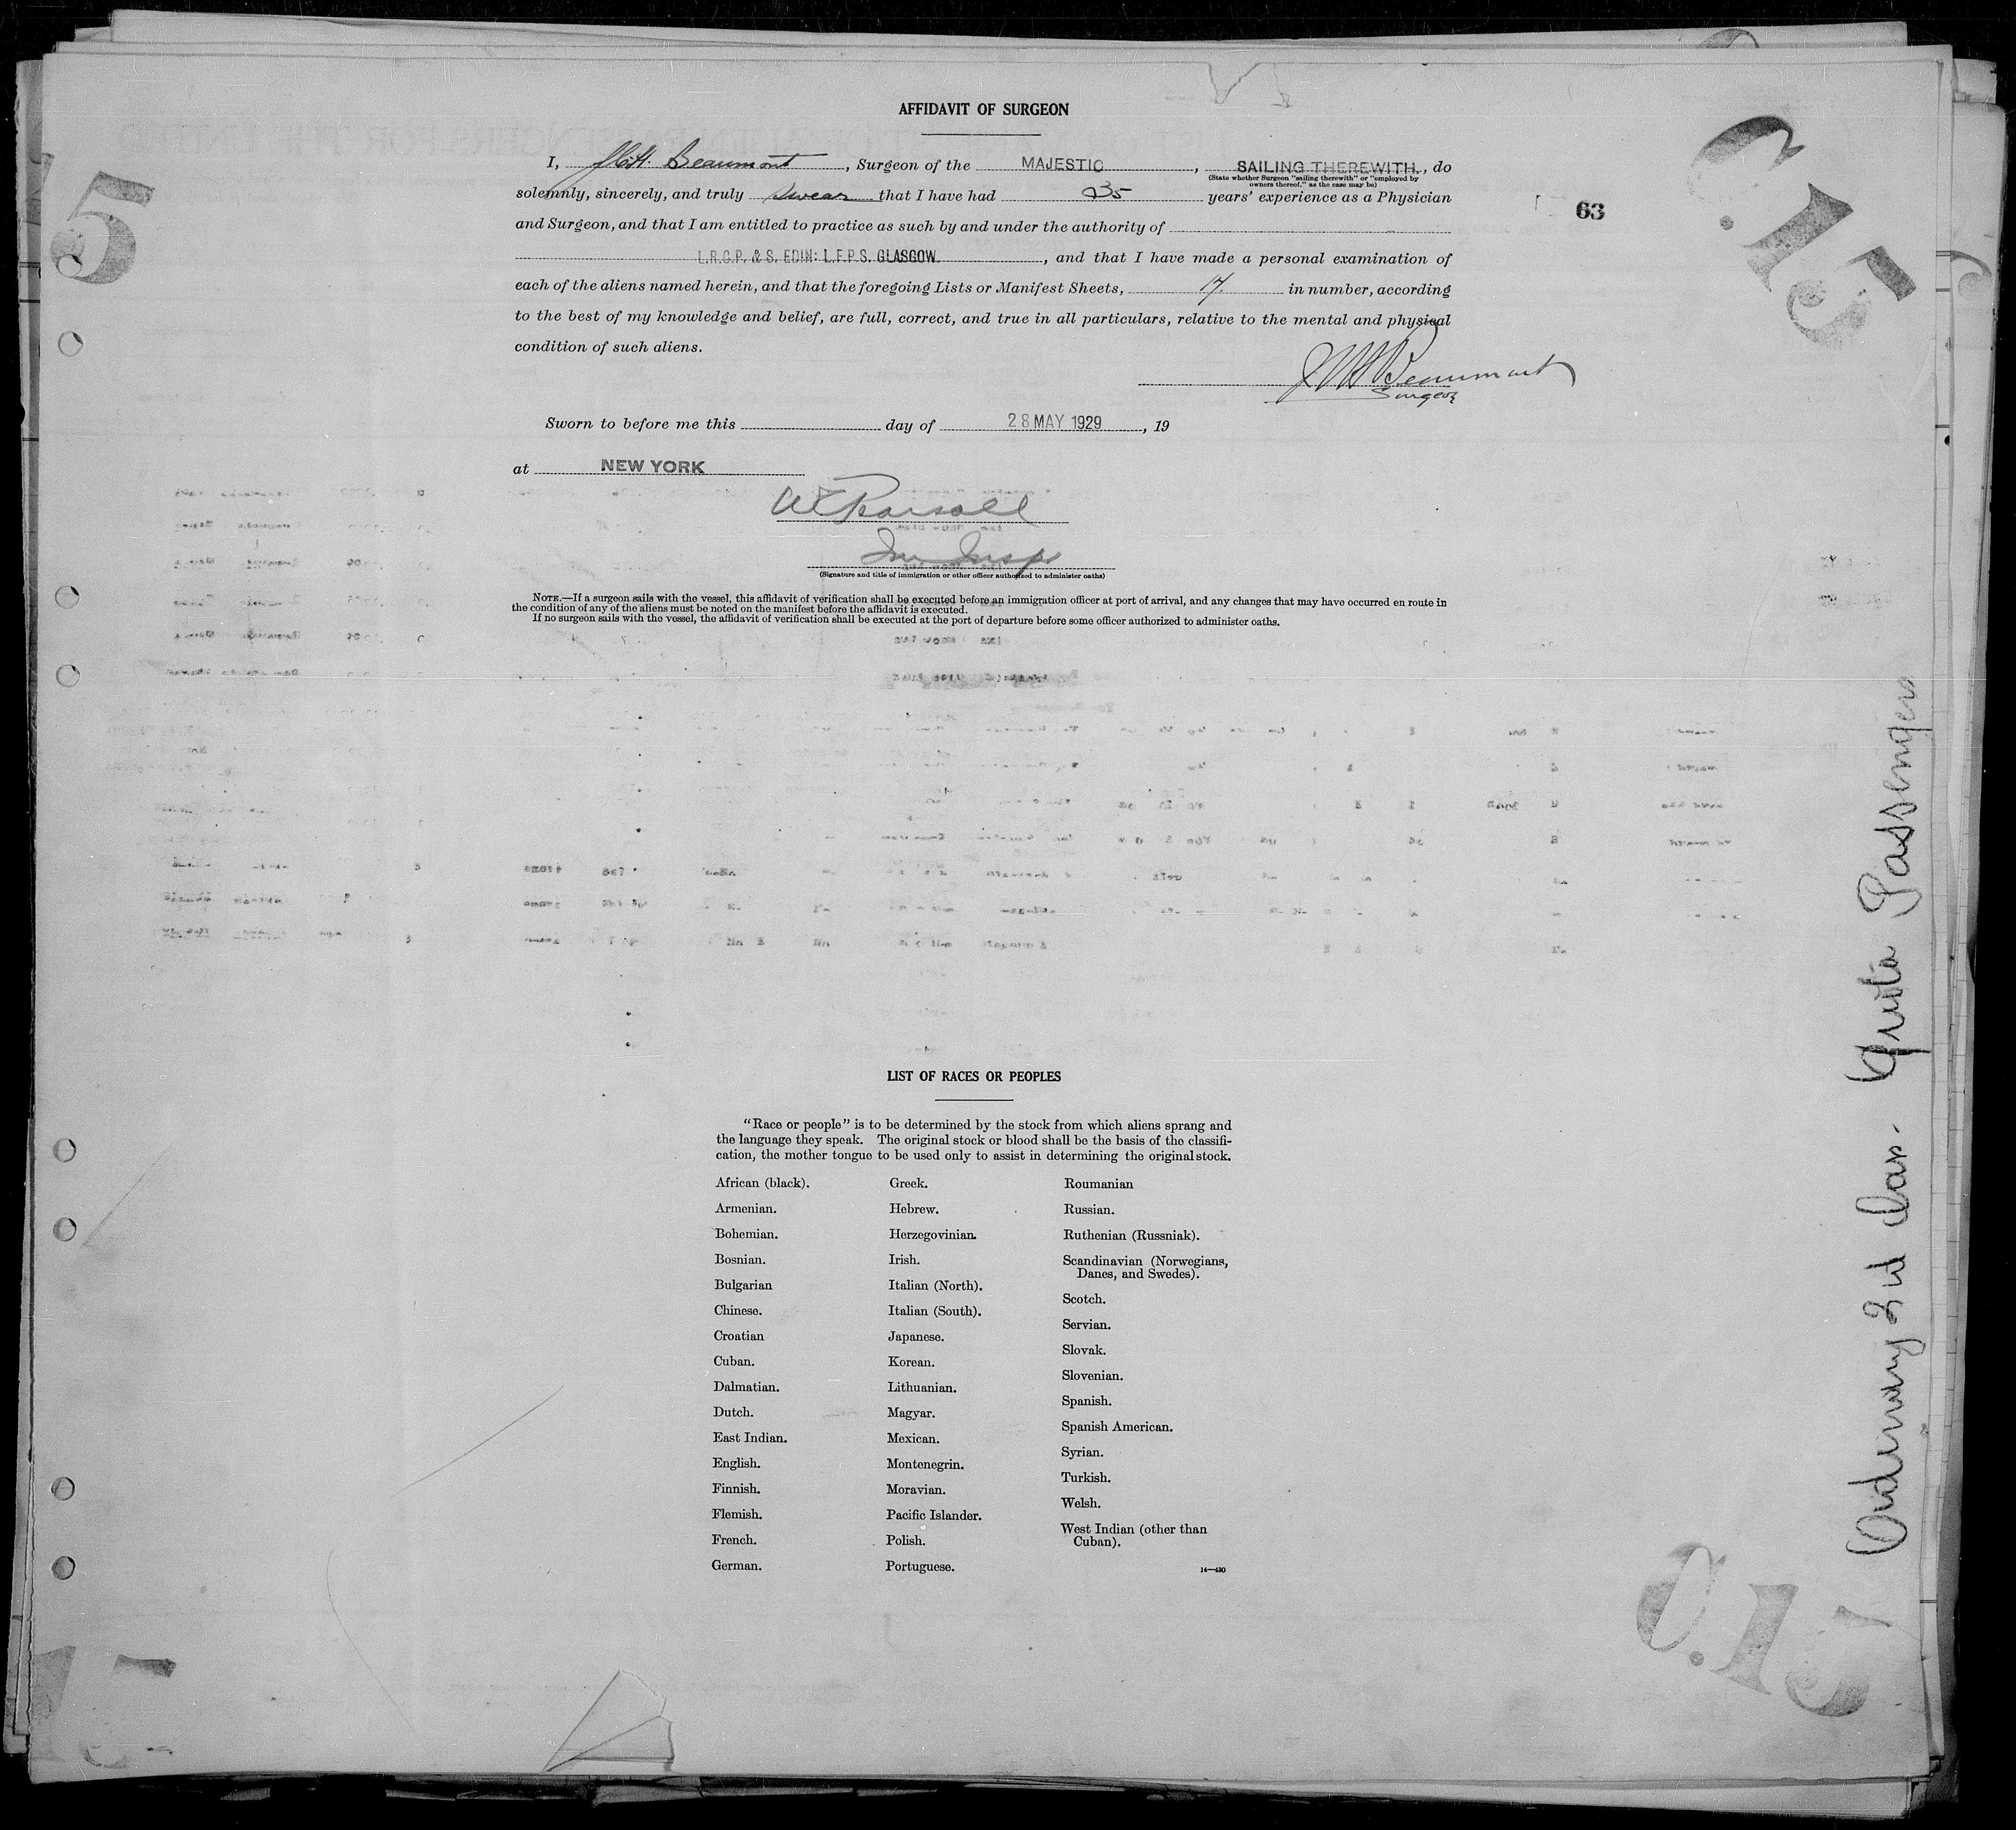 AFFIDAVIT OF SURGEON
I, J.C.H. Beaumont, Surgeon of the MAJESTIC, SAILING THEREWITH., do
(State whether Surgeon "sailing therewith" or "employed by
owners thereof," as the case may be)
solemnly, sincerely, and truly swear that I have had 35 years' experience as a Physician
63
and Surgeon, and that I am entitled to practice as such by and under the authority of
L.R.C.P. & S. EDIN: L.F.P.S. GLASGOW., and that I have made a personal examination of
each of the aliens named herein, and that the foregoing Lists or Manifest Sheets, 17. in number, according
to the best of my knowledge and belief, are full, correct, and true in all particulars, relative to the mental and physical
condition of such aliens.
Beaumont
Surgeon
Sworn to before me this day of 28 MAY 1929, 19
at NEW YORK
Im Insp.
(Signature and title of immigration or other officer authorized to administer oaths)
NOTE.—If a surgeon sails with the vessel, this affidavit of verification shall be executed before an immigration officer at port of arrival, and any changes that may have occurred en route in
the condition of any of the aliens must be noted on the manifest before the affidavit is executed.
If no surgeon sails with the vessel, the affidavit of verification shall be executed at the port of departure before some officer authorized to administer oaths.
LIST OF RACES OR PEOPLES
"Race or people" is to be determined by the stock from which aliens sprang and
the language they speak. The original stock or blood shall be the basis of the classifi-
cation, the mother tongue to be used only to assist in determining the original stock.
African (black).
Armenian.
Bohemian.
Bosnian.
Bulgarian
Chinese.
Croatian
Cuban.
Dalmatian.
Dutch.
East Indian.
English.
Finnish.
Flemish.
French.
German.
Greek.
Hebrew.
Herzegovinian.
Irish.
Italian (North).
Italian (South).
Japanese.
Korean.
Lithuanian.
Magyar.
Mexican.
Montenegrin.
Moravian.
Pacific Islander.
Polish.
Portuguese.
Roumanian
Russian.
Ruthenian (Russniak).
Scandinavian (Norwegians,
Danes, and Swedes).
Scotch.
Servian.
Slovak.
Slovenian.
Spanish.
Spanish American.
Syrian.
Turkish.
Welsh.
West Indian (other than
Cuban).
14—430
C.15
C.15
5
15
Ordinary 3rd Class. Quota Passengers